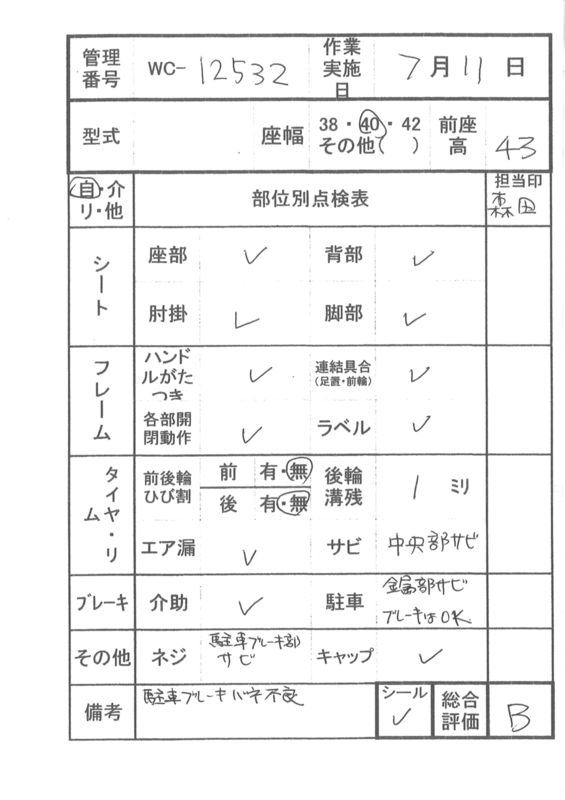 管理番号 WC-12532 作業実施日 7月11日
型式 座幅 38・40・42 その他( ) 前座高 43
自・介リ・他 部位別点検表 担当印 森田
シート 座部 ✓ 背部 ✓
肘掛 ✓ 脚部 ✓
フレーム ハンドルがたつき ✓ 連結具合(足置・前輪) ✓
各部開閉動作 ✓ ラベル ✓
タイヤ・リム 前後輪ひび割 前 有・無 後 有・無 後輪溝残 1 ミリ
エア漏 ✓ サビ 中央部サビ
ブレーキ 介助 ✓ 駐車 金属部サビ ブレーキはOK
その他 ネジ 駐車ブレーキ部サビ キャップ ✓
備考 駐車ブレーキバネ不良 シール ✓ 総合評価 B